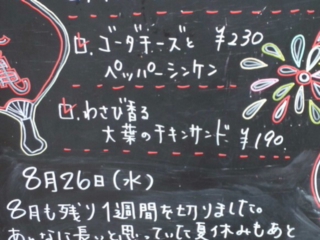 ゴーダチーズと ¥230
ペッパーシンケン
わさび香る
大葉のチキンサンド ¥190
8月26日(水)
8月も残り1週間を切りました。
あんなに長いと思っていた夏休みもあと